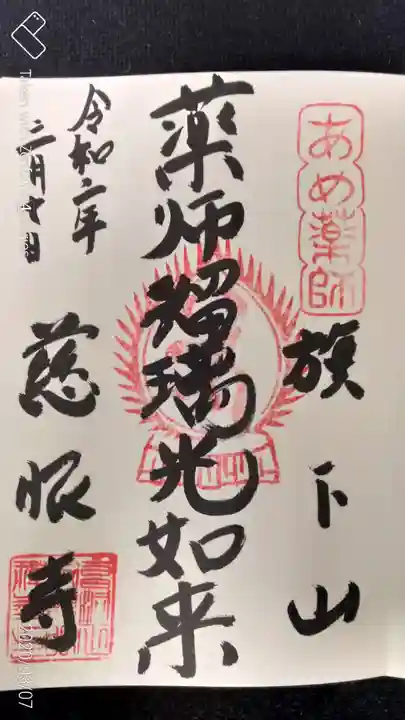 あめ薬師
旗下山
薬師瑠璃光如来
令和二年
三月七日
慈眼寺
Taken with
2020/03/07